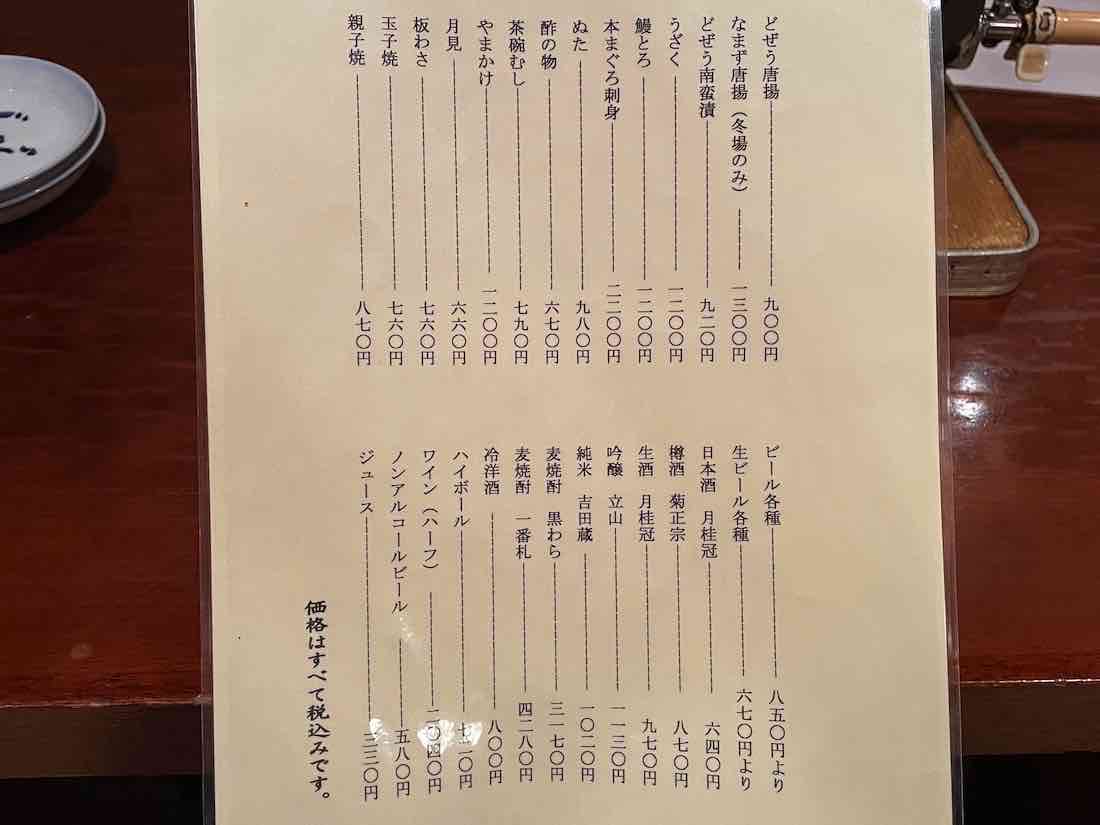 どぜう唐揚 九〇〇円
なまず唐揚（冬場のみ） 一三〇〇円
どぜう南蛮漬 九二〇円
うざく 一二〇〇円
鰻とろ 一二〇〇円
本まぐろ刺身 二二〇〇円
ぬた 九八〇円
酢の物 六七〇円
茶碗むし 七九〇円
やまかけ 一二〇〇円
月見 六六〇円
板わさ 七六〇円
玉子焼 七六〇円
親子焼 八七〇円
ビール各種 八五〇円より
生ビール各種 六七〇円より
日本酒 月桂冠 六四〇円
樽酒 菊正宗 八七〇円
生酒 月桂冠 九七〇円
吟醸 立山 一一三〇円
純米 吉田蔵 一〇二〇円
麦焼酎 黒わら 三一七〇円
麦焼酎 一番札 四二八〇円
冷洋酒 八〇〇円
ハイボール
ワイン（ハーフ） 二〇四〇円
ノンアルコールビール 五八〇円
ジュース 三三〇円
価格はすべて税込みです。